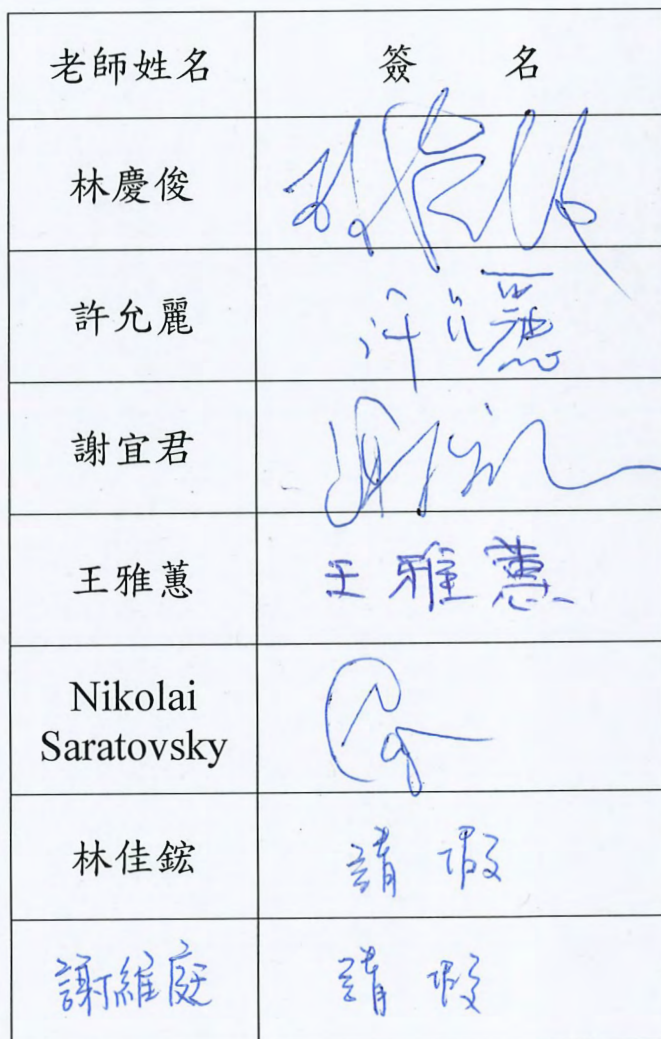 老師姓名 簽 名
林慶俊
許允麗 許允麗
謝宜君
王雅蕙 王雅蕙
Nikolai
Saratovsky
林佳鋐 請假
謝維庭 請假